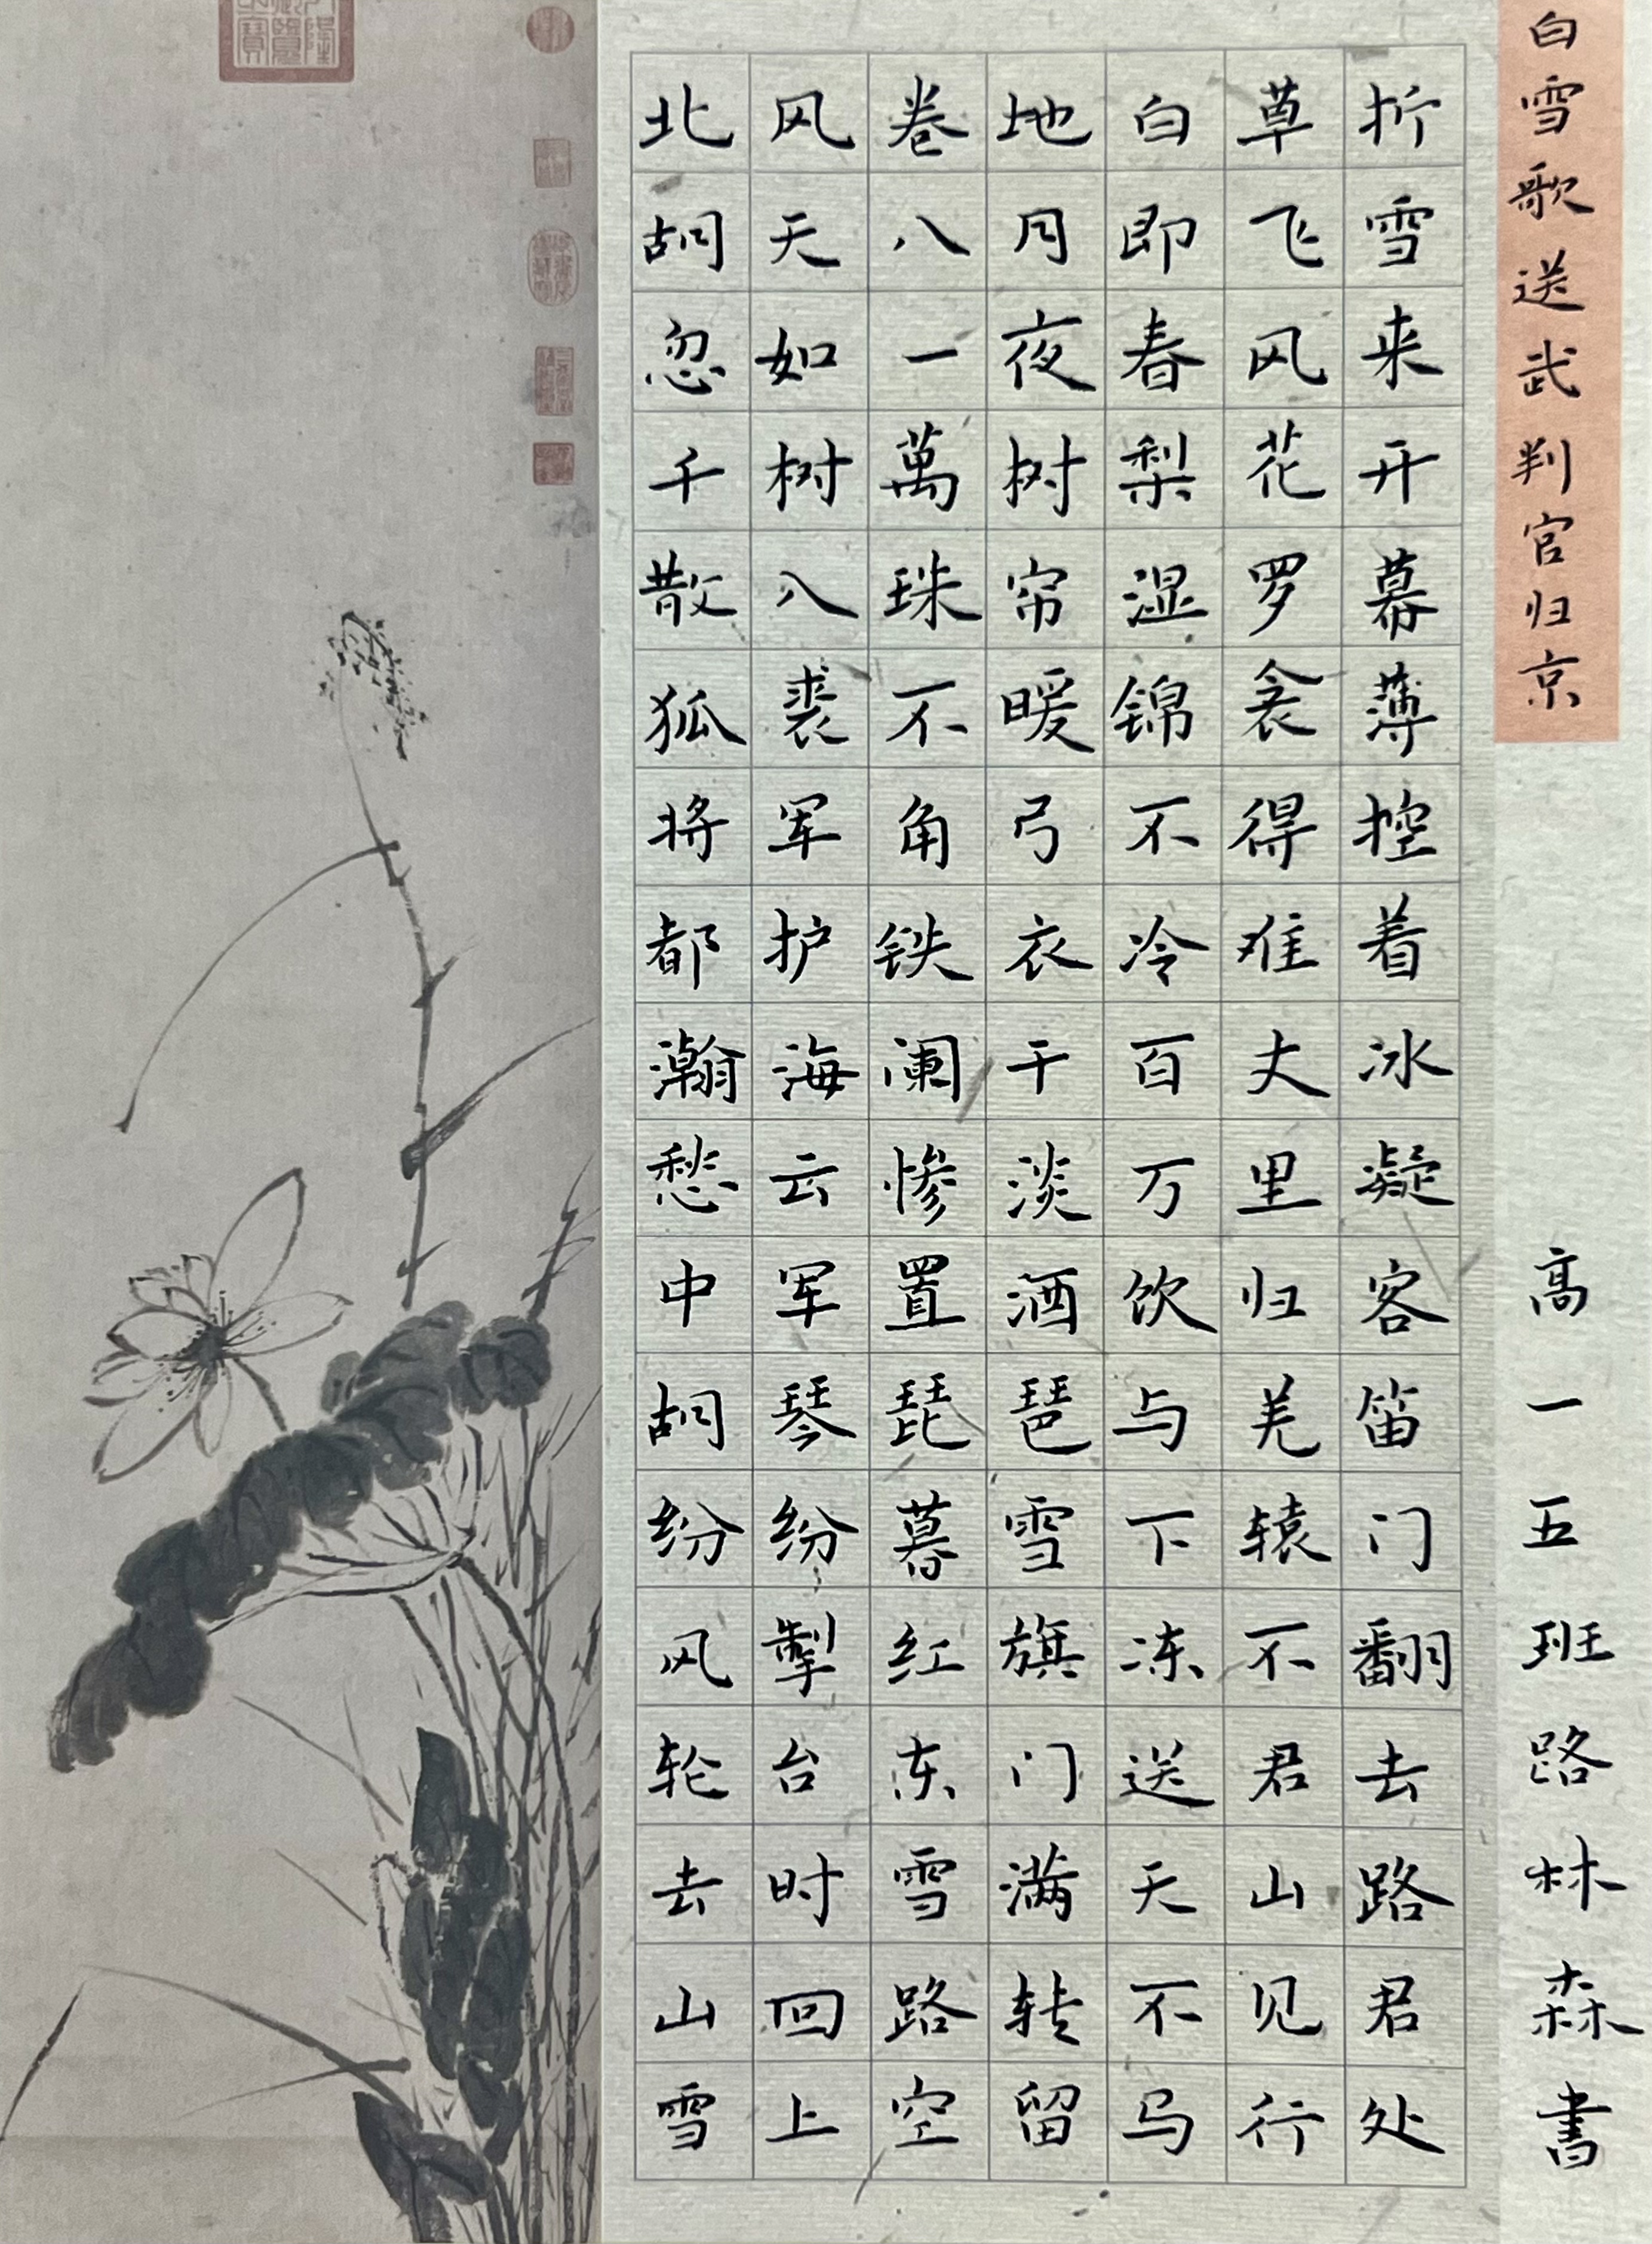 白雪歌送武判官归京
北风卷地白草折
胡天八月即飞雪
忽如一夜春风来
千树萬树梨花开
散入珠帘湿罗幕
狐裘不暖锦衾薄
将军角弓不得控
都护铁衣冷难着
瀚海阑干百丈冰
愁云惨淡万里凝
中军置酒饮归客
胡琴琵琶与羌笛
纷纷暮雪下辕门
风掣红旗冻不翻
轮台东门送君去
去时雪满天山路
山回路转不见君
雪上空留马行处
高一五班路林森書